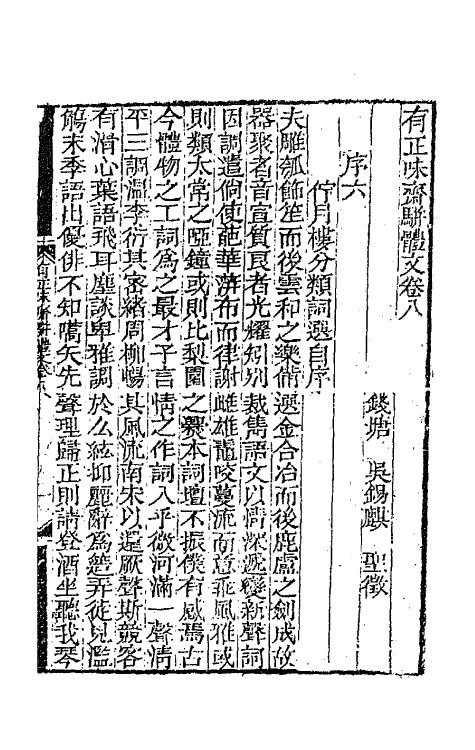 有正味齋駢體文卷八
錢塘　吳錫麒　聖徵
序六
佇月樓分類詞選自序
夫雕瓠飾笙而後雲和之樂備選金合冶而後鹿盧之劍成故
器聚者音宣質良者光燿矧別裁雋語文以情深遞變新聲詞
因調遣倘使葩華漭布而律謝雌雄鼃咬蔓流而意乖風雅或
則類太常之啞鐘或則比梨園之爨本詞壇不振僕有感焉古
今體物之工詞爲之最才子言情之作詞入乎微河滿一聲清
平三調溫李衍其密緒周柳暢其風流南宋以還厥聲斯競客
有滑心葉語飛耳塵談卑雅調於么絃抑麗辭爲簉弄徒見濫
觴末季語出優俳不知嚆矢先聲理歸正則請登酒坐聽我琴